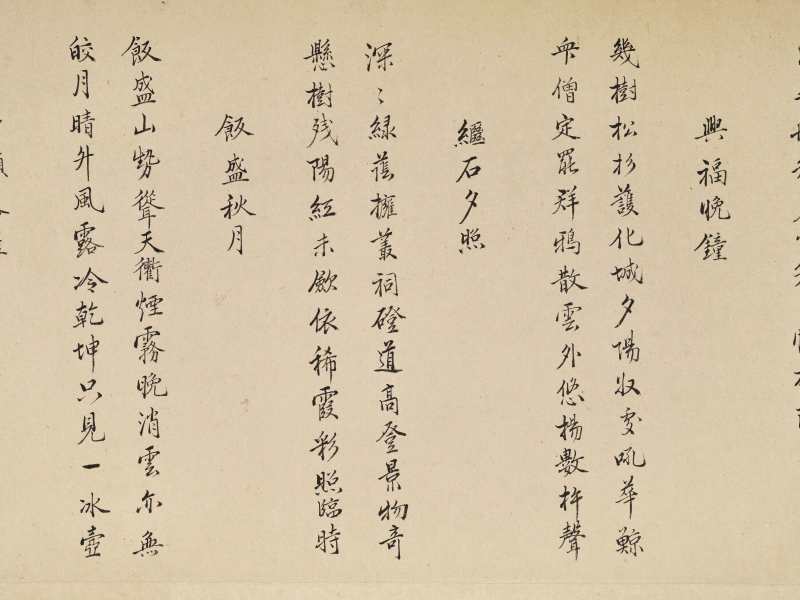 興福晚鐘
幾樹松杉護化城夕陽收處吼華鯨
衆僧定罷群鴉散雲外悠揚數杵聲
繼石夕照
深〻綠蔭擁叢祠磴道高登景物奇
懸樹残陽紅未斂依稀霞彩照臨時
飯盛秋月
飯盛山勢聳天衢煙霧晚消雲亦無
皎月晴外風露冷乾坤只見一冰壺